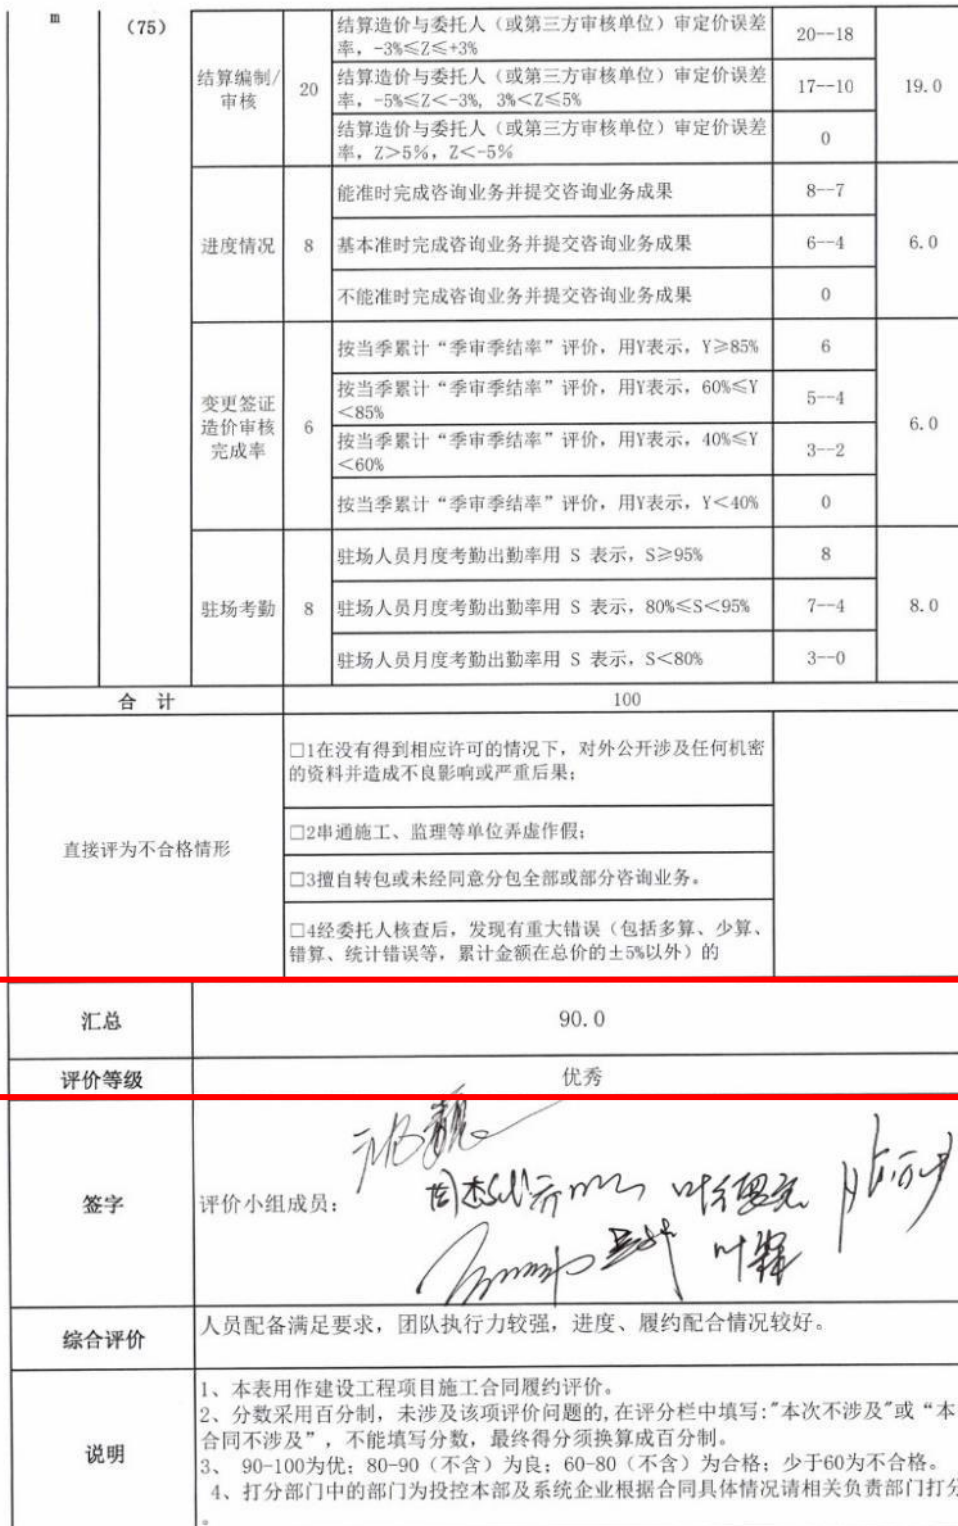 m
（75）
结算编制/
审核
20
结算造价与委托人（或第三方审核单位）审定价误差
率，-3%≤Z≤+3%
20--18
结算造价与委托人（或第三方审核单位）审定价误差
率，-5%≤Z<-3%, 3%<Z≤5%
17--10
结算造价与委托人（或第三方审核单位）审定价误差
率，Z>5%，Z<-5%
0
19.0
进度情况
8
能准时完成咨询业务并提交咨询业务成果
8--7
基本准时完成咨询业务并提交咨询业务成果
6--4
不能准时完成咨询业务并提交咨询业务成果
0
6.0
变更签证
造价审核
完成率
6
按当季累计“季审季结率”评价，用Y表示，Y≥85%
6
按当季累计“季审季结率”评价，用Y表示，60%≤Y
<85%
5--4
按当季累计“季审季结率”评价，用Y表示，40%≤Y
<60%
3--2
按当季累计“季审季结率”评价，用Y表示，Y<40%
0
6.0
驻场考勤
8
驻场人员月度考勤出勤率用 S 表示，S≥95%
8
驻场人员月度考勤出勤率用 S 表示，80%≤S<95%
7--4
驻场人员月度考勤出勤率用 S 表示，S<80%
3--0
8.0
合 计
100
直接评为不合格情形
□1在没有得到相应许可的情况下，对外公开涉及任何机密
的资料并造成不良影响或严重后果；
□2串通施工、监理等单位弄虚作假；
□3擅自转包或未经同意分包全部或部分咨询业务。
□4经委托人核查后，发现有重大错误（包括多算、少算、
错算、统计错误等，累计金额在总价的±5%以外）的
汇总
90.0
评价等级
优秀
签字
评价小组成员：
综合评价
人员配备满足要求，团队执行力较强，进度、履约配合情况较好。
说明
1、本表用作建设工程项目施工合同履约评价。
2、分数采用百分制，未涉及该项评价问题的,在评分栏中填写:"本次不涉及"或“本
合同不涉及”，不能填写分数，最终得分须换算成百分制。
3、 90-100为优；80-90（不含）为良；60-80（不含）为合格；少于60为不合格。
4、打分部门中的部门为投控本部及系统企业根据合同具体情况请相关负责部门打分
。